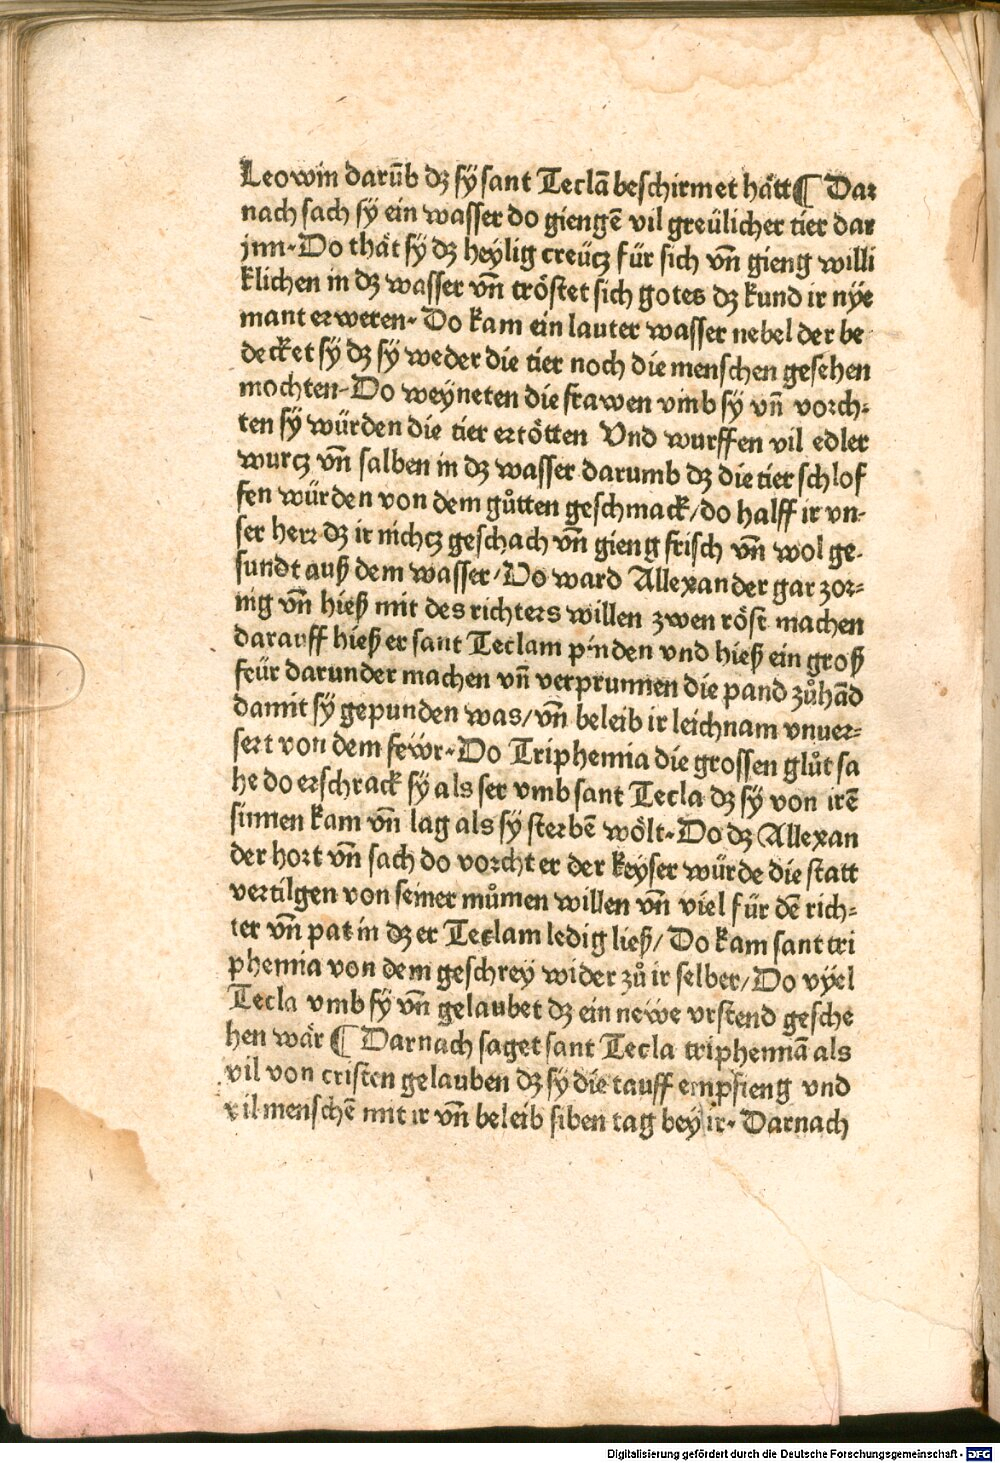 Leowin darūb dz sÿ sant Teclā beschirmet hätt ¶ Dar
nach sach sÿ ein wasser do giengē vil greülicher tier dar
jnn. Do thät sÿ dz heylig creücz für sich vn̄ gieng willi
klichen in dz wasser vn̄ tröstet sich gotes dz kund ir nÿe
mant erweren. Do kam ein lauter wasser nebel der be
decket sÿ dz sÿ weder die tier noch die menschen gesehen
mochten. Do weÿneten die frawen vmb sÿ vn̄ vorch⸗
ten sÿ würden die tier ertötten Vnd wurffen vil edler
wurcz vn̄ salben in dz wasser darumb dz die tier schlof
fen würden von dem gůtten geschmack/ do halff ir vn⸗
ser herr dz ir nichcz geschach vn̄ gieng frisch vn̄ wol ge⸗
sundt auß dem wasser/ Do ward Allexander gar zor⸗
nig vn̄ hieß mit des richters willen zwen röst machen
darauff hieß er sant Teclam pinden vnd hieß ein groß
feür darunder machen vn̄ verprunnen die pand zůhād
damit sÿ gepunden was/ vn̄ beleib ir leichnam vnuer⸗
sert von dem fewr. Do Triphemia die grossen glůt sa
he do erschrack sÿ als ser vmb sant Tecla dz sÿ von irē
sinnen kam vn̄ lag als sÿ sterbē wölt. Do dz Allexan
der hort vn̄ sach do vorcht er der keyser würde die statt
vertilgen von seiner můmen willen vn̄ viel für dē rich⸗
ter vn̄ pat in dz er Teclam ledig ließ/ Do kam sant tri
phemia von dem geschrey wider zů ir selber/ Do vÿel
Tecla vmb sÿ vn̄ gelaubet dz ein newe vrstend gesche
hen wär ¶ Darnach saget sant Tecla triphemiā als
vil von cristen gelauben dz sÿ die tauff empfieng vnd
vil menschē mit ir vn̄ beleib siben tag bey ir. Darnach
Digitalisierung gefördert durch die Deutsche Forschungsgemeinschaft - DFG